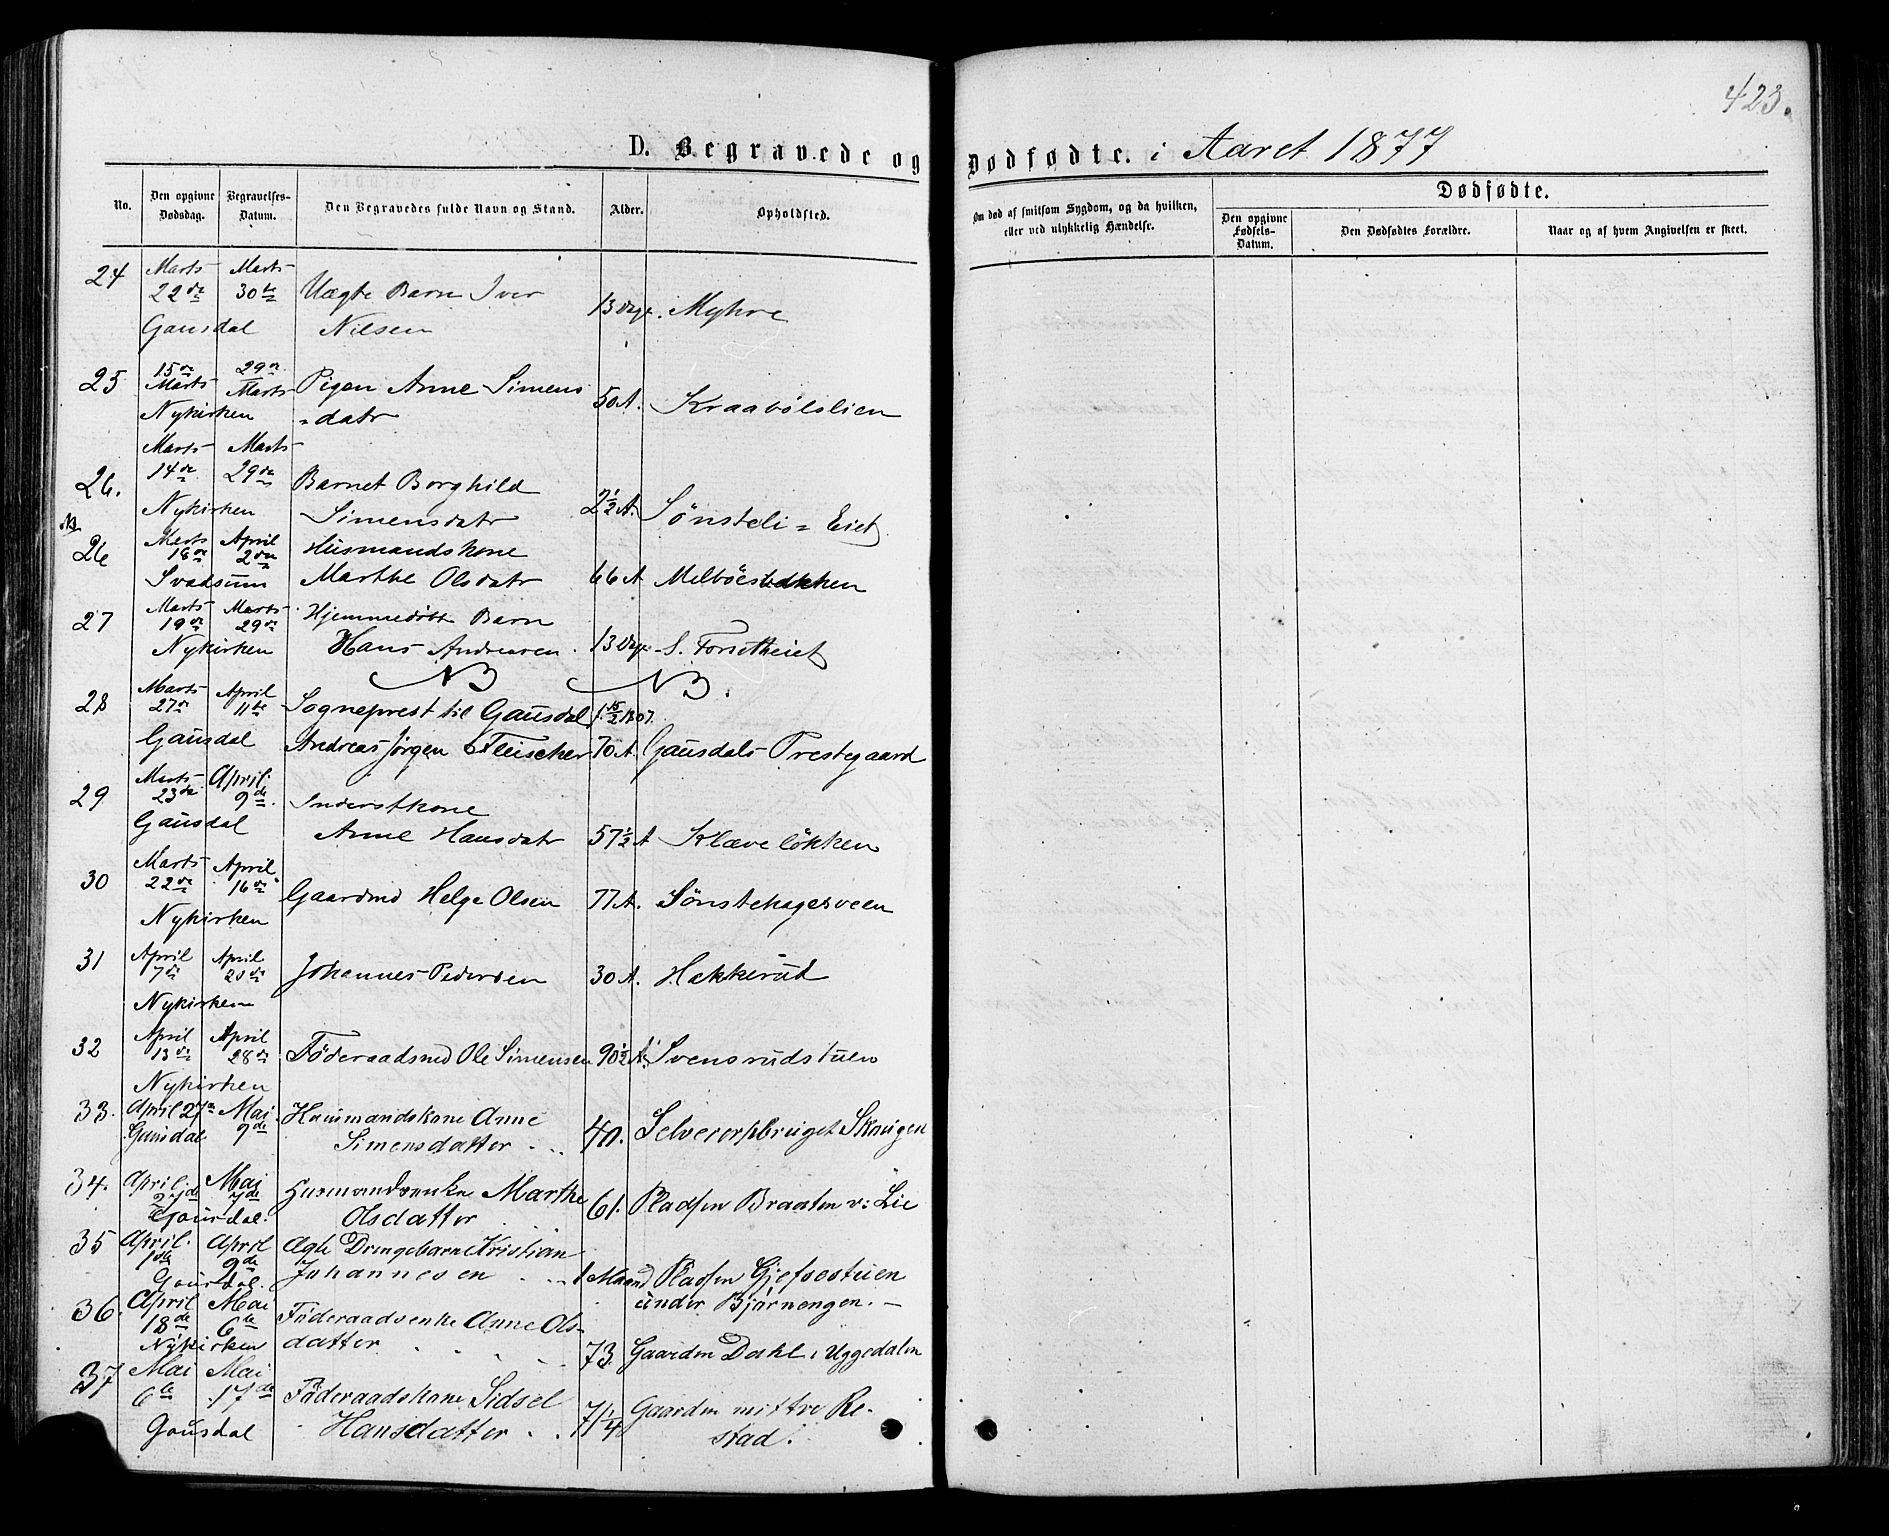 423.
D. Begravede og Dødfødte. i Aaret 1877
No.
Den opgivne Dødsdag.
Begravelses-Datum.
Den Begravedes fulde Navn og Stand.
Alder.
Opholdsted.
Om død af smitsom Sygdom, og da hvilken, eller ved ulykkelig Hændelse.
Dødfødte.
Den opgivne Fødsels-Datum.
Den Dødfødtes Forældre.
Naar og af hvem Angivelsen er skeet.
24 Marts 22de Marts 30te Uægte Barn Iver 13 Dge. Myhre
Gausdal Nilsen
25 15de Marts 29de Marts Pigen Anne Simens 50 A. Kraabölslien
Nykirken =datr
26. Marts 14de Marts 29de Barnet Borghild
Nykirken Simensdatr 2½ A. Sönsteli = Eiet
26 Marts 18de April 2den Husmandskone
Svadsum Marthe Olsdatr 66 A Melböesbakken
27 Marts 19de Marts 29de Hjemmedöbt Barn
Nykirken Hans Andreasen 13 Dge S. Forsetheiet
NB NB.
28 Marts 27de April 11te Sogneprest til Gausdal f. 15/2 1807.
Gausdal Andreas Jörgen Fleischer 70 A. Gausdals Prestegaard
29 Marts 23de April 9de Inderstkone
Gausdal Anne Hansdatr 57½ A Klæveløkken
30 Marts 22de April 16de Gaardmd Helge Olsen 77 A. Sönstehagesveen
Nykirken
31 April 7de April 20de Johannes Pedersen 30 A. Hakkerud
Nykirken
32 April 13de April 28de Föderaadsmd Ole Simensen 90½ A. Svensrudstuen
Nykirken
33. April 27de Mai 9de Huusmandskone Anne
Gausdal Simensdatter 40. Selveierpladsen Skougen
34. April 27de Mai 7de Husmandsenke Marthe
Gausdal. Olsdatter 61. Pladsen Braaten v: Lie
35 April 1ste April 9de Ægte Drengebarn Kristian
Gausdal. Johannesen 1 Maaned Pladsen Gjefsestuen
under Bjørnengen.
36. April 18de Mai 6te Føderaadsenke Anne Ols-
Nykirken datter 73. Gaarden Dahl i Uggedalen
37 Mai 6te Mai 17de Føderaadskone Sidsel
Gausdal Hansdatter 71¼ Gaarden mittre Re-
stad.